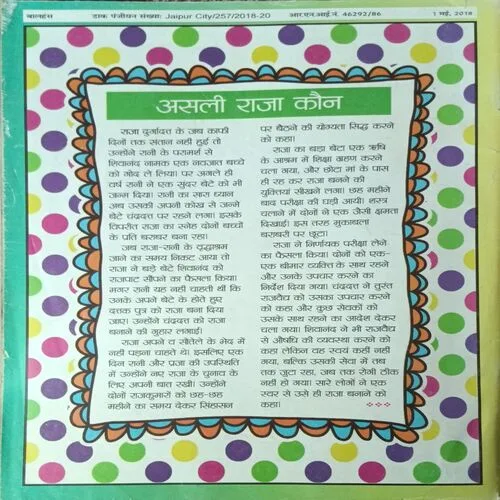 बालहंस
डाक पंजीयन संख्या: Jaipur City/257/2018-20
आर.एन.आई.नं. 46292/86
1 मई, 2018
असली राजा कौन
राजा दुर्गादत्त के जब काफी
दिनों तक संतान नहीं हुई तो
उन्होंने रानी के परामर्श से
शिवानंद नामक एक नवजात बच्चे
को गोद ले लिया। पर अगले ही
वर्ष रानी ने एक सुंदर बेटे को भी
जन्म दिया। रानी का सारा ध्यान
अब उसकी अपनी कोख से जन्मे
बेटे चंद्रदत्त पर रहने लगा। इसके
विपरीत राजा का स्नेह दोनों बच्चों
के प्रति बराबर बना रहा।
जब राजा-रानी के वृद्धाश्रम
जाने का समय निकट आया तो
राजा ने बड़े बेटे शिवानंद को
राजपाट सौंपने का फैसला किया।
मगर रानी यह नहीं चाहती थीं कि
उनके अपने बेटे के होते हुए
दत्तक पुत्र को राजा बना दिया
जाए। उन्होंने चंद्रदत्त को राजा
बनाने की गुहार लगाई।
राजा अपने व सौतेले के भेद में
नहीं पड़ना चाहते थे। इसलिए एक
दिन रानी और प्रजा की उपस्थिति
में उन्होंने नए राजा के चुनाव के
लिए अपनी बात रखी। उन्होंने
दोनों राजकुमारों को छह-छह
महीने का समय देकर सिंहासन
पर बैठने की योग्यता सिद्ध करने
को कहा।
राजा का बड़ा बेटा एक ऋषि
के आश्रम में शिक्षा ग्रहण करने
चला गया, और छोटा मां के पास
ही रह कर राजा बनने की
युक्तियां सीखने लगा। छह महीने
बाद परीक्षा की घड़ी आयी। शस्त्र
चलाने में दोनों ने एक जैसी क्षमता
दिखाई। इस तरह मुकाबला
बराबरी पर छूटा।
राजा ने निर्णायक परीक्षा लेने
का फैसला किया। दोनों को एक-
एक बीमार व्यक्ति के साथ रहने
और उनके उपचार करने का
निर्देश दिया गया। चंद्रदत्त ने तुरंत
राजवैद्य को उसका उपचार करने
को कहा और कुछ सेवकों को
उसके साथ रहने का आदेश देकर
चला गया। शिवानंद ने भी राजवैद्य
से औषधि की व्यवस्था करने को
कहा लेकिन वह स्वयं कहीं नहीं
गया, बल्कि उसकी सेवा में तब
तक जुटा रहा, जब तक रोगी ठीक
नहीं हो गया। सारे लोगों ने एक
स्वर से उसे ही राजा बनाने को
कहा।